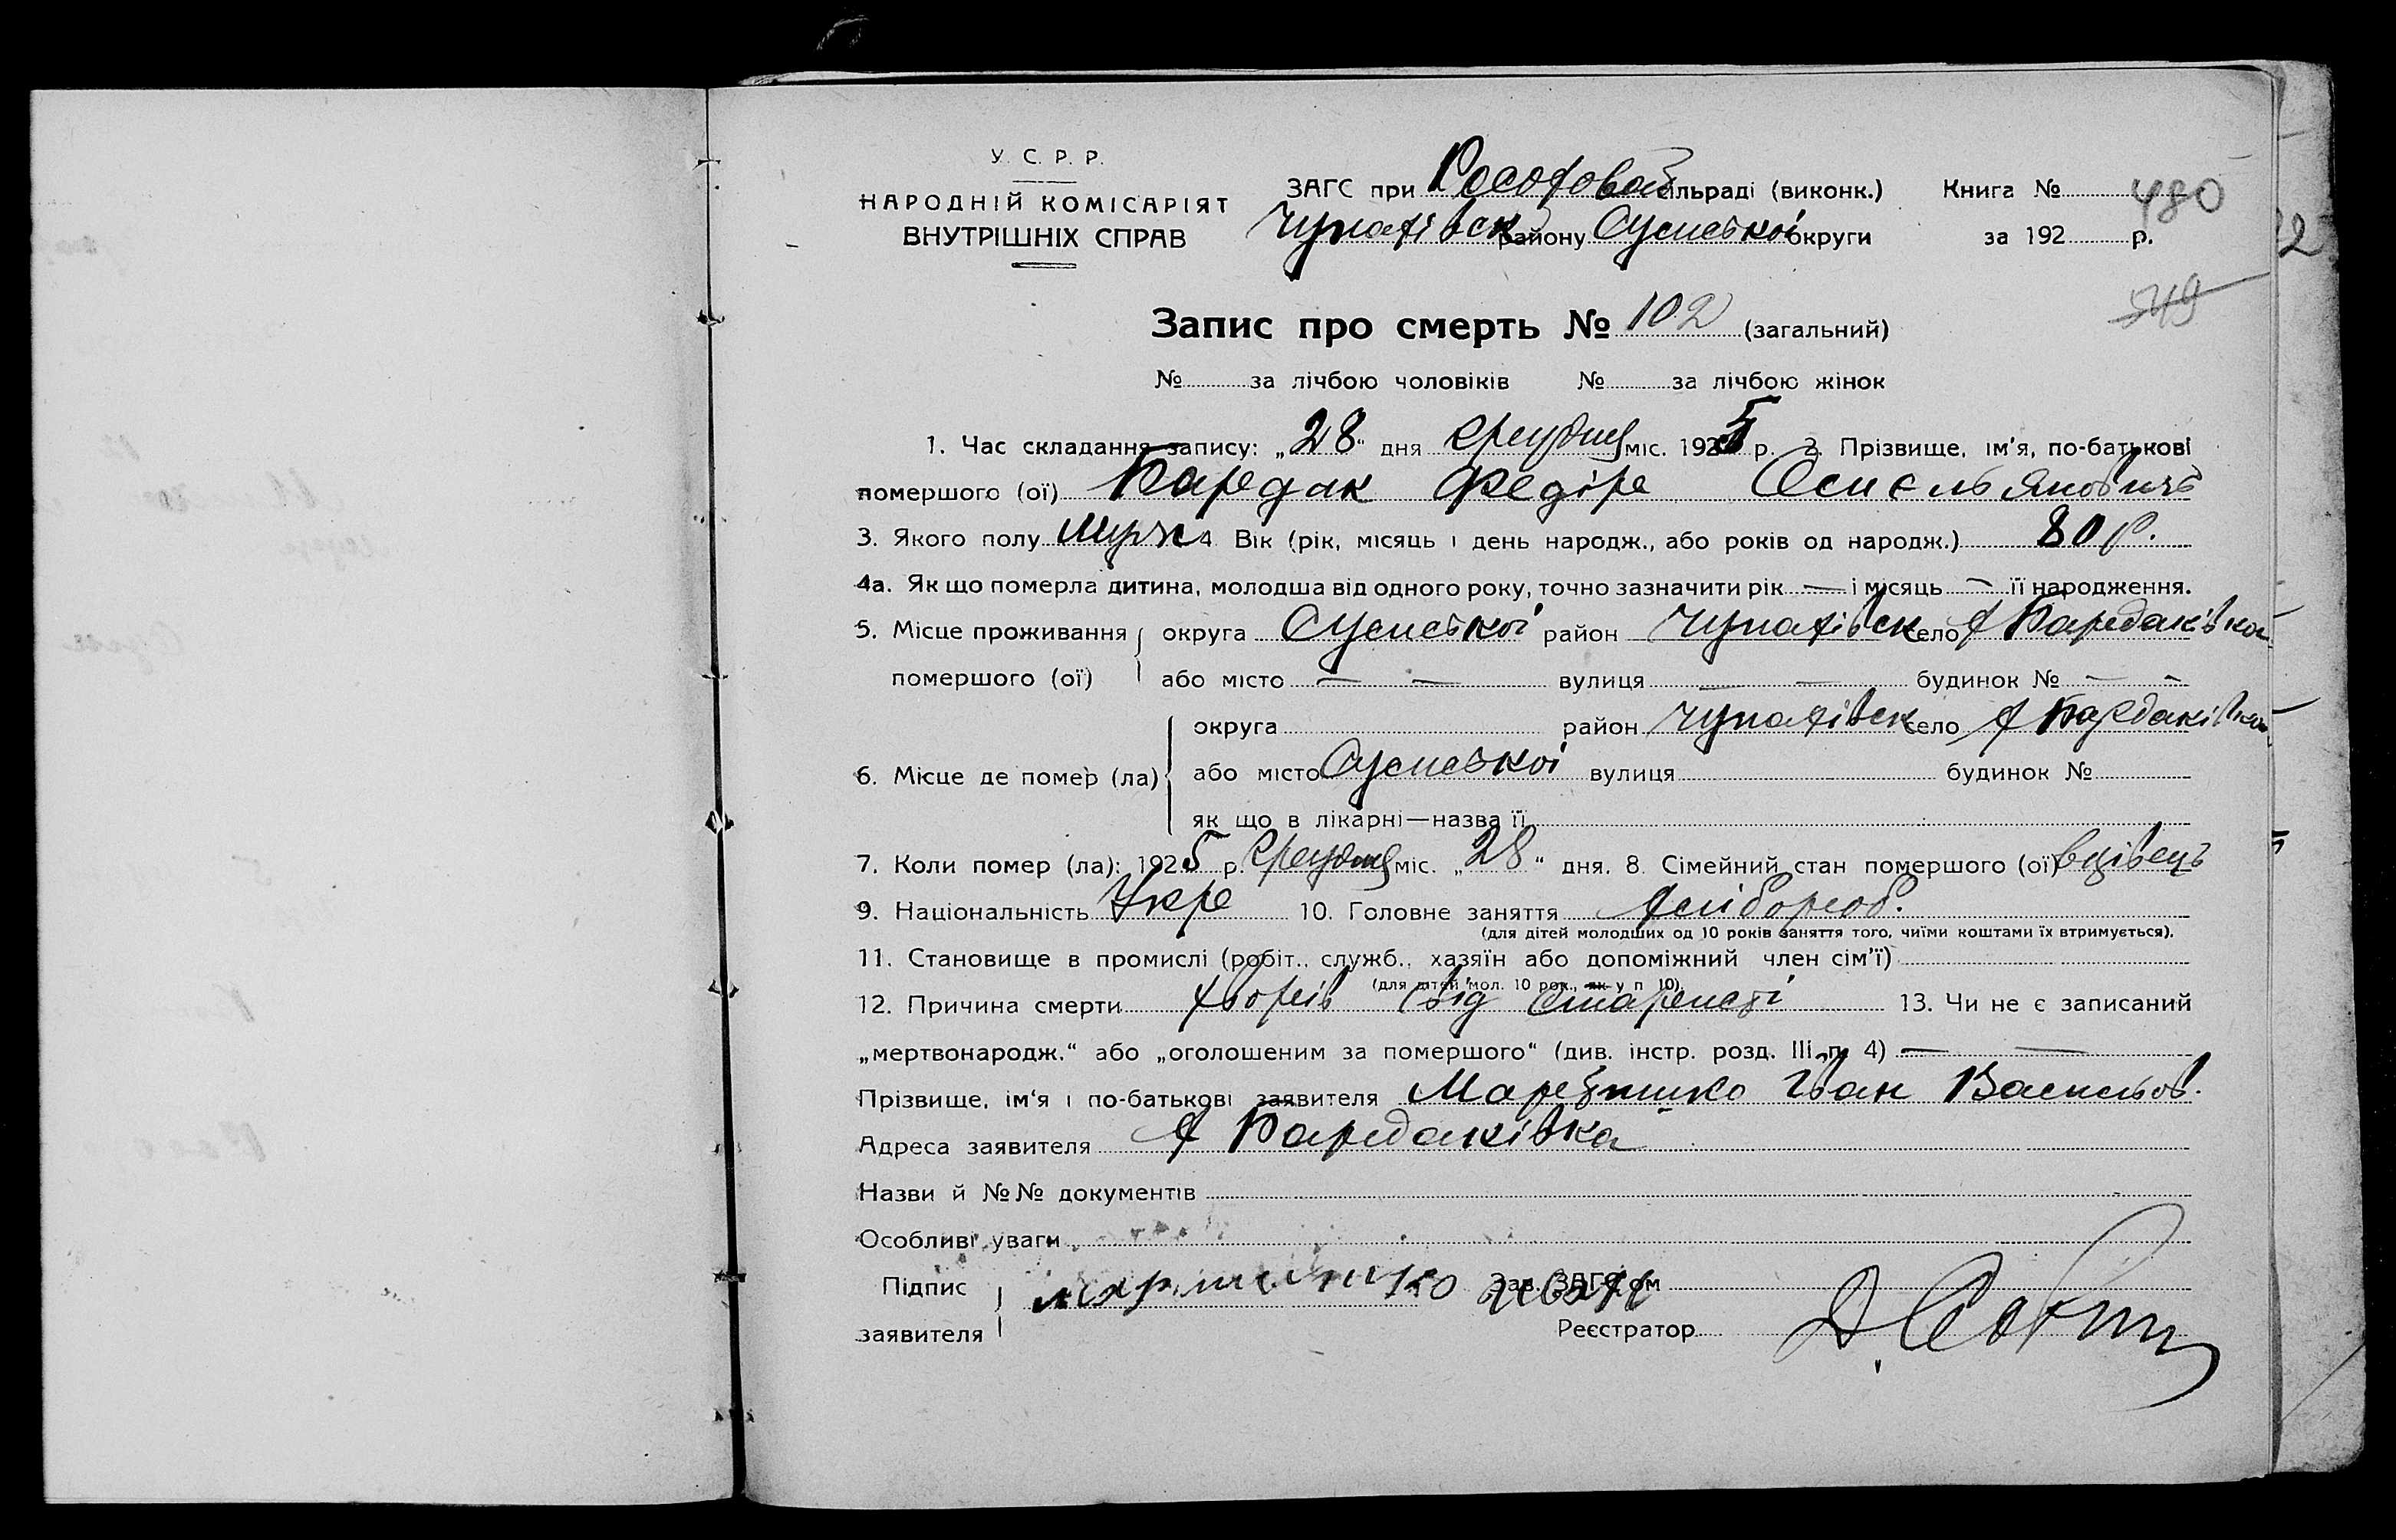 У. С. Р. Р.
НАРОДНІЙ КОМІСАРІЯТ
ВНУТРІШНІХ СПРАВ
ЗАГС при сільраді (виконк.) Книга № 480
району округи за 192 р.
549
Запис про смерть № 102 (загальний)
№ за лічбою чоловіків № за лічбою жінок
1. Час складання запису: „28“ дня грудня міс. 1925 р. 2. Прізвище, ім'я, по-батькові
помершого (ої) Бардак Федір
3. Якого полу муж 4. Вік (рік, місяць і день народж., або років од народж.) 80 р.
4а. Як що померла дитина, молодша від одного року, точно зазначити рік — і місяць — її народження.
5. Місце проживання округа район село Х Бардаківка
помершого (ої) або місто — — вулиця — — будинок № — —
округа район село Х Бардаківка
6. Місце де помер (ла) або місто вулиця будинок №
як що в лікарні—назва її
7. Коли помер (ла): 1925 р. грудня міс. „28“ дня. 8. Сімейний стан помершого (ої) вдівець
9. Національність Укр 10. Головне заняття хлібороб.
(для дітей молодших од 10 років заняття того, чиїми коштами їх втримується).
11. Становище в промислі (робіт., служб., хазяїн або допоміжний член сім'ї)
(для дітей мол. 10 рок., як у п 10).
12. Причина смерти хворів від старисті 13. Чи не є записаний
„мертвонародж.“ або „оголошеним за помершого“ (див. інстр. розд. III, п. 4) — —
Прізвище, ім'я і по-батькові заявителя Іван Васильов.
Адреса заявителя Х Бардаківка
Назви й №№ документів
Особливі уваги
Підпис Зав. ЗАГС'ом
заявителя Реєстратор